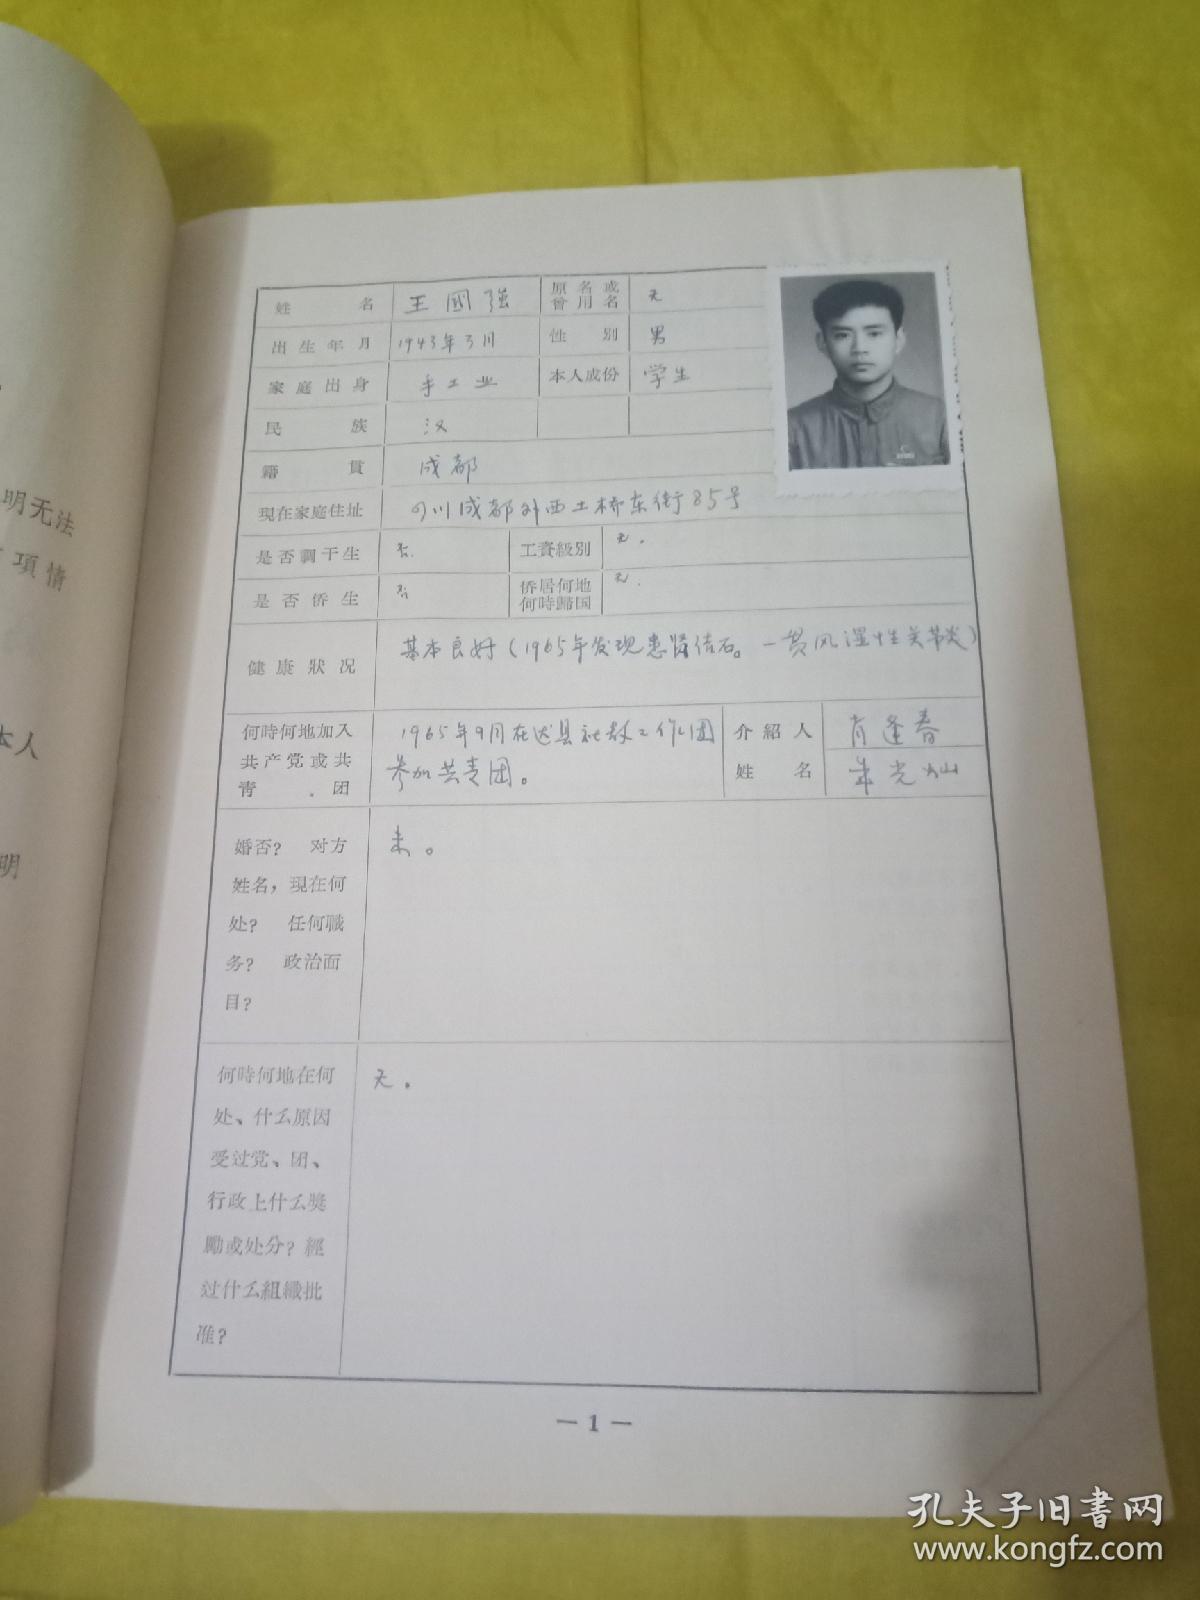 明无法
項情
本人
明
姓名 王國强 原名或曾用名 无
出生年月 1943年3月 性别 男
家庭出身 手工业 本人成份 学生
民族 汉
籍貫 成都
現在家庭住址 四川成都外西土桥东街85号
是否調干生 否. 工資級別 无.
是否侨生 否 侨居何地何時歸国 无.
健康狀况 基本良好(1965年发现患肾结石。一贯风湿性关节炎)
何時何地加入 1965年9月在达县社教工作团 介紹人 肖逢春
共产党或共 参加共青团。 姓名 朱光灿
青.团
婚否? 对方 未。
姓名,現在何
处? 任何職
务? 政治面
目?
何時何地在何 无.
处、什么原因
受过党、团、
行政上什么奬
勵或处分?經
过什么組織批
准?
—1—
孔夫子旧书网
www.kongfz.com